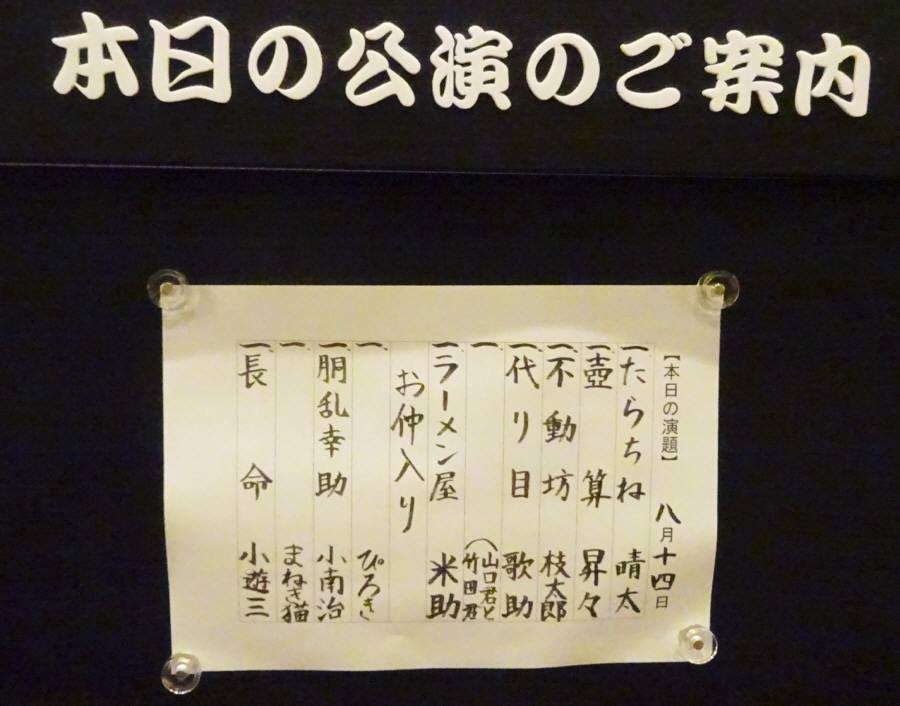 本日の公演のご案内
【本日の演題】 八月十四日
一、たらちね 晴太
一、壺算 昇々
一、不動坊 枝太郎
一、代り目 歌助
一、 (山口君と竹田君
一、ラーメン屋 米助
お仲入り
一、 ぴろき
一、胴乱幸助 小南治
一、 まねき猫
一、長命 小遊三